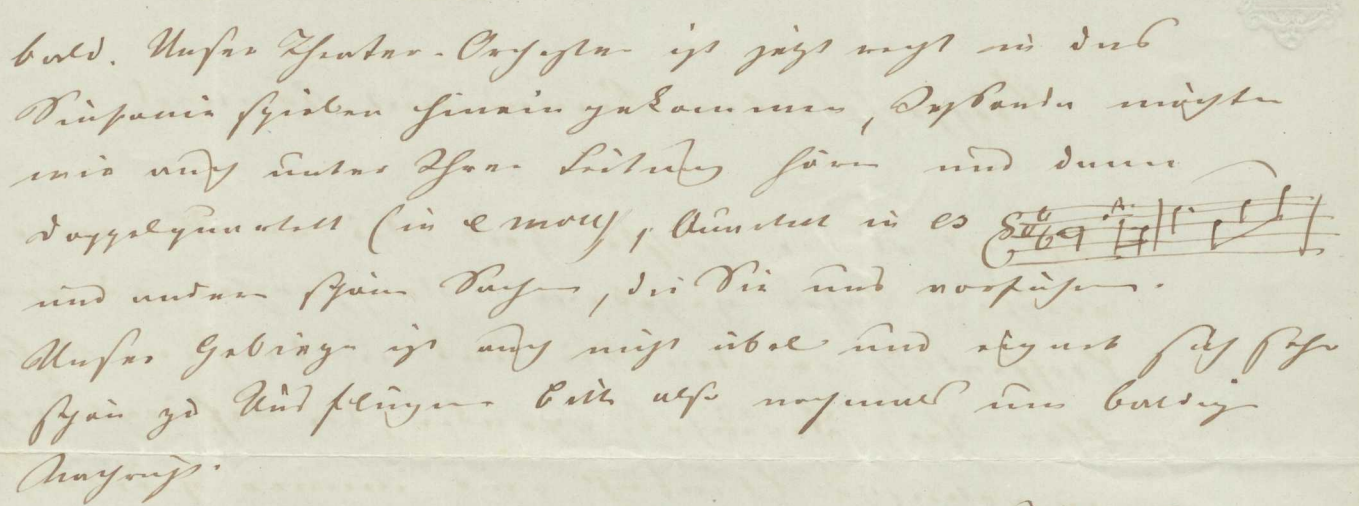 bald. Unser Theater-Orchester ist jetzt recht in das
Sinfonie spielen hinein gekommen, möchten
wir auch unter Ihrer Leitung hören und dann
Doppelquartett (in e moll), Quartett in es
und andere schöne Sachen, die Sie uns vorführen.
Unser Gebirge ist auch nicht übel und eignet sich sehr
schön zu Ausflügen bitte also nochmals um baldige
Nachricht.